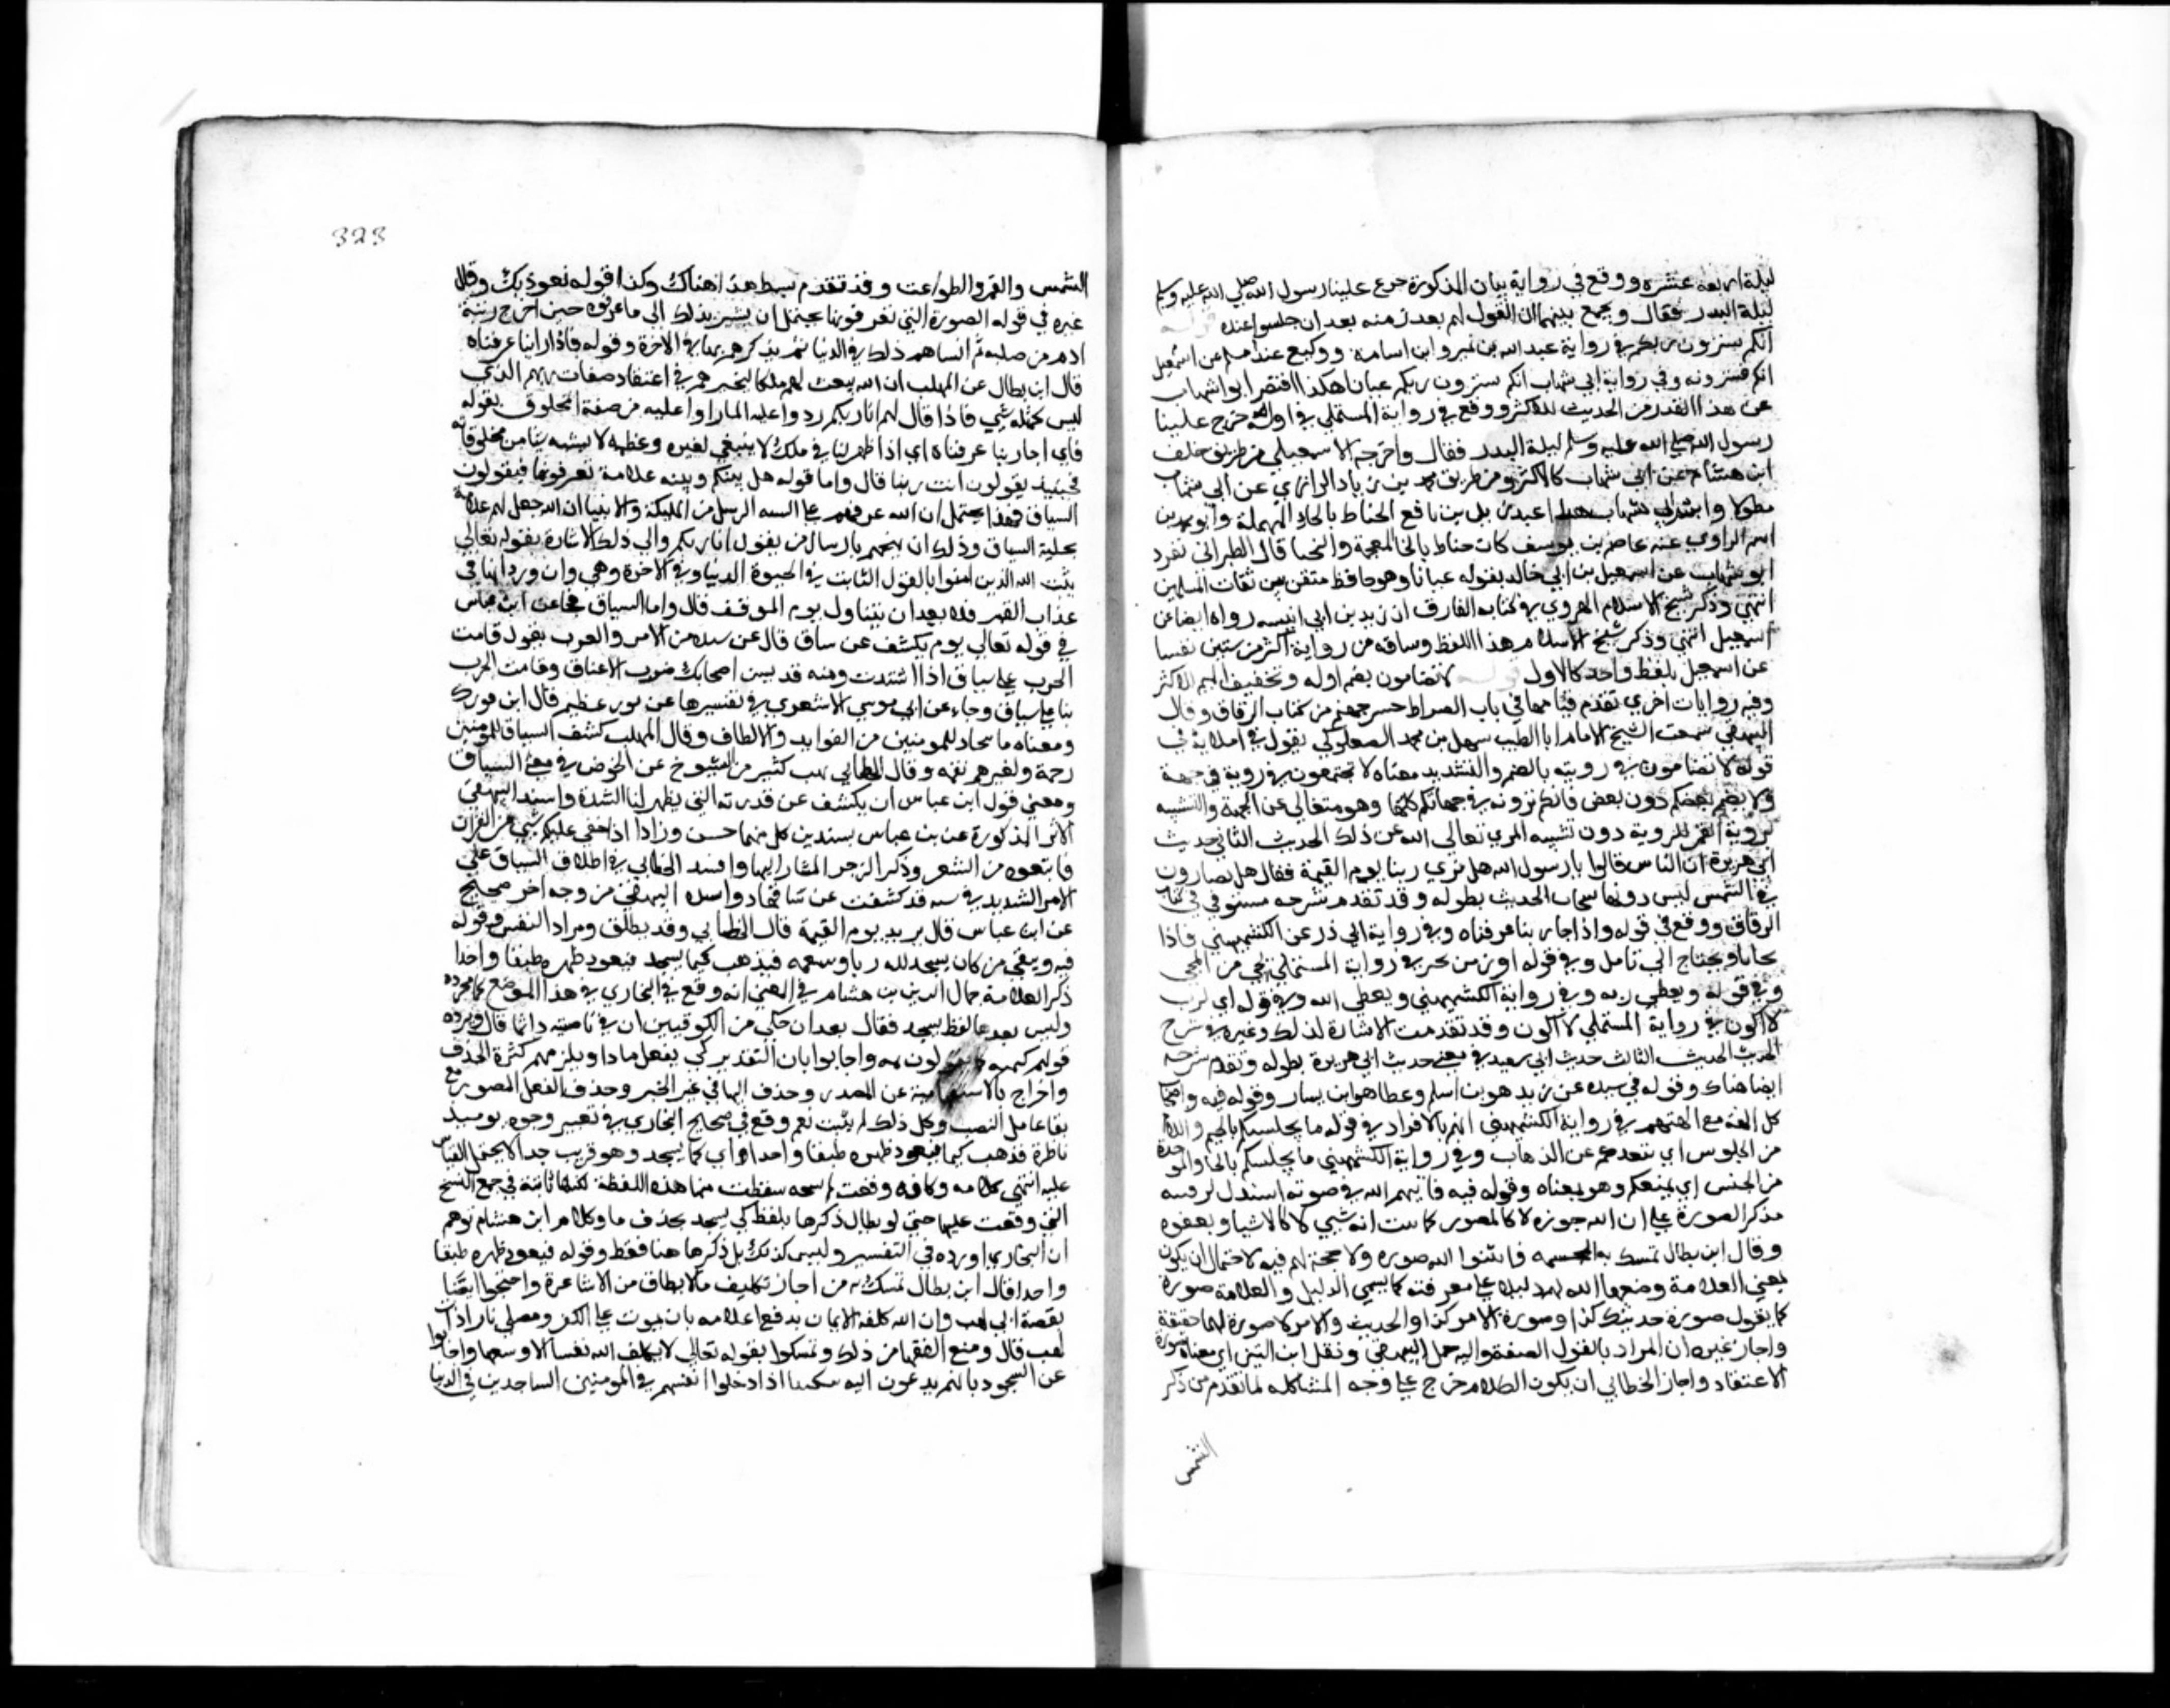 ليلة اربعة عشره ووقع في رواية بيان المذكورة خرج علينا رسول الله صلي الله عليه وسلم
ليلة البدر فقال ويجمع بينهما ان القول لهم بعد زمنه بعد ان جلسوا عنده قوله
انكم سترون ربكم في رواية عبد الله بن نمير وابن اسامة ووكيع عند مسلم عن اسمعيل
انكم سترونه وفي رواية ابي شهاب انكم سترون ربكم عيانا هكذا اقتصر ابو شهاب
عن هذا القدر من الحديث للاكثر ووقع في رواية المستملي في اوله خرج علينا
رسول الله صلي الله عليه وسلم ليلة البدر فقال واخرجه الاسمعيلي من طريق خلف
ابن هشام عن ابي شهاب كالاكثر ومن طريق محمد بن زياد الرازي عن ابي شهاب
مطولا واسم ابي شهاب هذا عبد ربه بن نافع الحناط بالحا المهملة
اسم الراوي عنه عاصم بن يوسف كان خناط بالخا المعجمة قال الطبراني تفرد
ابو شهاب عن اسمعيل بن ابي خالد بقوله عيانا وهو حافظ متقن من ثقات المسلمين
انتهي وذكر شيخ الاسلام الهروي في كتابه الفارق ان زيد بن ابي انيسه رواه ايضا عن
اسمعيل انتهي وذكر شيخ الاسلام هذا اللفظ وساقه من رواية اكثر من ستين نفسا
عن اسمعيل بلفظ واحد كالاول قوله لا تضامون بضم اوله وتخفيف الميم للاكثر
وفيه روايات اخري تقدم بيانها في باب الصراط جسر جهنم من كتاب الرقاق وقال
البيهقي سمعت الشيخ الامام ابا الطيب سهل بن محمد الصعلوكي يقول في املايه في
قوله لا تضامون في رويته بالضم والتشديد معناه لا تجتمعون في روية في جهة
ولا يضم بعضكم دون بعض فانكم ترونه في جهاتكم كلها وهو متعالي عن الجهة والتشبيه
لروية القمر للروية دون تشبيه المري تعالي الله عن ذلك الحديث الثاني حديث
ابي هريرة ان الناس قالوا يا رسول الله هل نري ربنا يوم القيمة فقال هل تضارون
في الشمس ليس دونها سحاب الحديث بطوله وقد تقدم شرحه مستوفي في كتاب
الرقاق ووقع في قوله واذا جا ربنا عرفناه وفي رواية ابي ذر عن الكشميهني فاذا
جانا ويحتاج الي تامل وفي قوله اول من يجيز في رواية المستملي يجي من المجي
وفي قوله ويعطي ربه وفي رواية الكشميهني ويعطي الله وفي قوله اي رب
لا اكون في رواية المستملي لا اكون وقد تقدمت الاشارة لذلك وغيره في شرح
الحديث الحديث الثالث حديث ابي سعيد في معني حديث ابي هريرة بطوله وتقدم شرحه
ايضا هناك وقوله في سنده عن زيد هو بن اسلم وعطا هو ابن يسار وقوله فيه واصحاب
كل الهة مع الهتهم في رواية الكشميهني الههم بالافراد في قوله ما يجلسكم بالجيم واللام
من الجلوس اي يقعدكم عن الذهاب وفي رواية الكشميهني ما يحبسكم بالحا والموحدة
من الحبس اي يمنعكم وهو بمعناه وقوله فيه فاتيهم الله في صورته استدل
مذكر الصورة علي ان الله صورة لا كالصور كما ثبت انه شي لا كالاشيا
وقال ابن بطال تمسك به المجسمه فاثبتوا لله صوره ولا حجة لهم فيه لاحتمال ان يكون
بمعني العلامة وضعها الله لهم دليلا علي معرفته كما يسمي الدليل والعلامة صورة
كما يقول صورة حديثك كذا وصورة الامر كذا والحديث والامر لا صورة لهما حقيقة
واجاز غيره ان المراد بالقول الصفة واليه جمل البيهقي ونقل ابن التين اي معناه صورة
الاعتقاد واجاز الخطابي ان يكون الكلام خرج علي وجه المشاكله لما تقدم من ذكر
الشمس
323
الشمس والقمر والطواغيت وقد تقدم بسط هذا هناك وكذا قوله نعوذ بك وقال
غيره في قوله الصورة التي تعرفونها يحتمل ان يشير بذلك الي ما عرفوه حين اخرج ذرية
ادم من صلبه ثم انساهم ذلك في الدنيا ثم يذكرهم بها في الاخرة وقوله فاذا راينا عرفناه
قال ابن بطال عن المهلب ان الله يبعث لهم ملكا ليختبرهم في اعتقاد صفات ربهم الذي
ليس كمثله شي فاذا قال لهم انا ربكم ردوا عليه لما راوا عليه من صفة المخلوق بقوله
فاي اجا ربنا عرفناه اي اذا ظهر لنا في ملك لا ينبغي لغيره وعظمه لا يشبه شيا من مخلوقاته
فحينيذ يقولون انت ربنا قال واما قوله هل بينكم وبينه علامة تعرفونها فيقولون
الساق فهذا يحتمل ان الله عرفهم علي السنة الرسل من الملئكة والانبيا ان الله جعل لهم علامة
تجلية الساق وذلك ان يمتحنهم بارسال من يقول انا ربكم والي ذلك الاشارة بقوله تعالي
يثبت الله الذين امنوا بالقول الثابت في الحيوة الدنيا وفي الاخرة وهي وان ورد انها في
عذاب القبر فلا يبعد ان يتناول يوم الموقف قال واما الساق فجا عن ابن عباس
في قوله تعالي يوم يكشف عن ساق قال عن شدة من الامر والعرب يقول قامت
الحرب علي ساق اذا اشتدت ومنه قد سن اصحابك ضرب الاعناق وقامت الحرب
بنا علي ساق وجا عن ابي موسي الاشعري في تفسيرها عن نور عظيم قال ابن فورك
ومعناه ما يتجدد للمومنين من الفوايد والالطاف وقال المهلب كشف الساق للمومنين
رحمة ولغيرهم نقمه وقال الخطابي تهيب كثير من الشيوخ عن الخوض في معني الساق
ومعني قول ابن عباس ان يكشف عن قدرته التي يظهر لنا الشدة واسند البيهقي
الاثر المذكورة عن بن عباس بسندين كل منهما حسن وزاد اذا خفي عليكم شي من القران
فابتغوه من الشعر وذكر الرجز المشار اليها وانشد الخطابي في اطلاق الساق علي
الامر الشديد في سنة قد كشفت عن ساقها واسنده البيهقي من وجه اخر صحيح
عن ابن عباس قال يريد يوم القيمة قال الخطابي وقد يطلق ومراد النفس وقوله
فيه ويبقي من كان يسجد لله ريا وسمعه فيذهب كيما يسجد فيعود ظهره طبقا واحدا
ذكر العلامة جمال الدين بن هشام في المغني انه وقع في البخاري في هذا الموضع كيما مجرده
وليس بعدها لفظ يسجد فقال بعد ان حكي من الكوفيين ان في ناصبة دائما قال ويرده
قولهم كيمه واجابوا بان التقدير كي يفعل ماذا ويلزمهم كثرة الحذف
واخراج ما الاستفهامية عن الصدر وحذف الها في غير الخبر وحذف الفعل المنصوب مع
بقا عامل النصب وكل ذلك لم يثبت نعم وقع في صحيح البخاري في تفسير وجوه يوميذ
ناظرة فذهب كيما فيعود ظهره طبقا واحدا اي كما يسجد وهو قريب جدا لا يحتمل القياس
عليه انتهي كلامه وكانه وقعت له نسخه سقطت منها هذه اللفظة لكنها ثابتة في جمع النسخ
التي وقفت عليها حتي ان ابن بطال ذكرها بلفظ كي يسجد بحذف ما وكلام ابن هشام توهم
ان البخاري اورده في التفسير وليس كذلك بل ذكرها هنا فقط وقوله فيعود ظهره طبقا
واحدا قال ابن بطال تمسك به من اجاز تكليف ما لا يطاق من الاشاعرة واحتجوا ايضا
بقصة ابي لهب وان الله كلفه الايمان به مع اعلامه بان يموت علي الكفر ويصلي نارا ذات
لهب قال ومنع الفقها من ذلك وتمسكوا بقوله تعالي لا يكلف الله نفسا الا وسعها واجابوا
عن السجود بانهم يدعون اليه تبكيتا اذ ادخلوا انفسهم في المومنين الساجدين في الدنيا